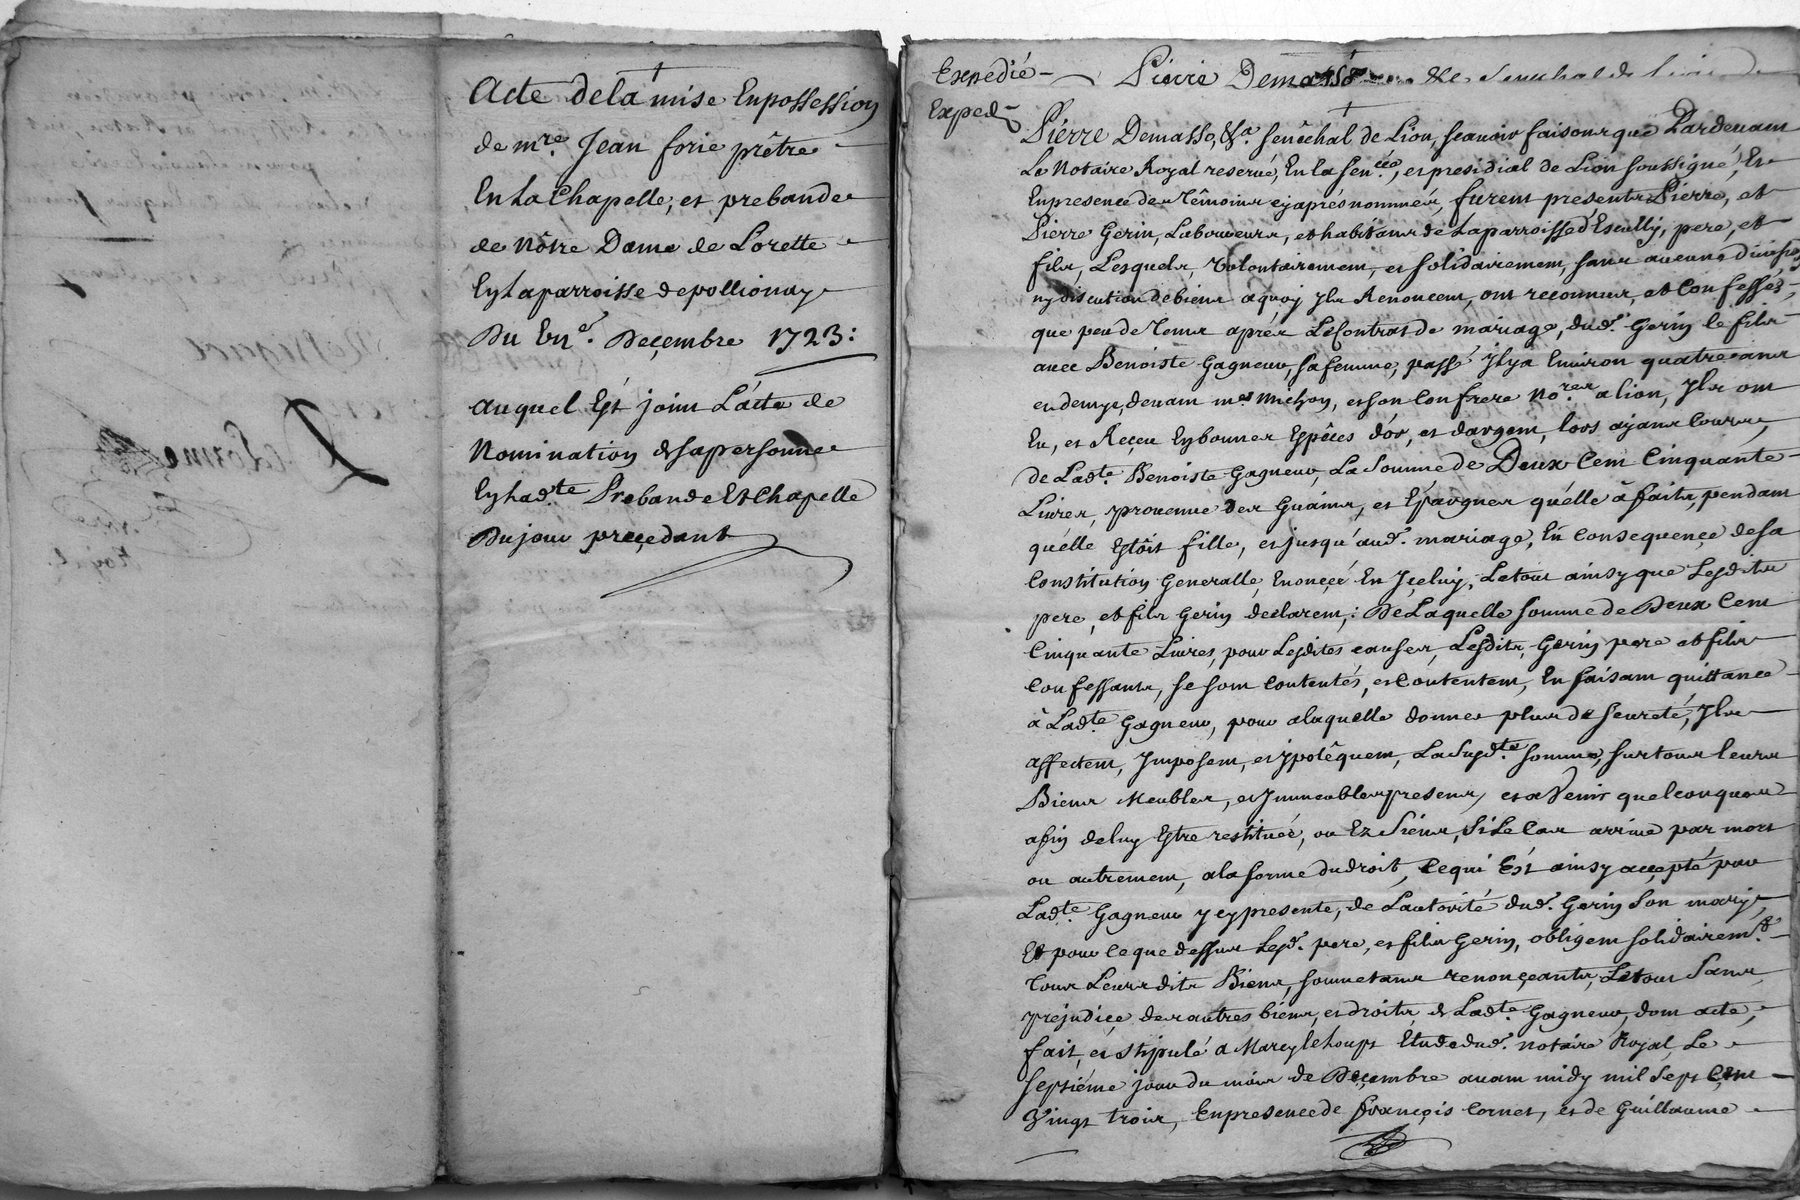 Acte de la mise En possession
de mre. Jean forie prêtre
En La Chapelle, et prebande
de Nôtre Dame de Lorette
En La parroisse de pollionay
Du Une. Decembre 1723:
auquel Est joint L'acte de
Nomination de sa personne
En Lade. Prebande Et Chapelle
Du jour precedant
Expedié
Pierre Demasso &a Senechal de Lion
Exped.
Pierre Demasso, &a. senêchal de Lion, scavoir faisons que Pardevant
Le Notaire Royal reservé, En la sen.cée, et presidial de Lion soussigné, Et
En presence des Têmoins cy aprés nommés, furent presents Pierre, et
Pierre Gerin, Laboureurs, et habitans de La parroisse d'Escully, pere, et
fils, Lesquels, volontairement, et solidairement, sans aucune division
ny discution de biens aquoy Ils Renoncent, ont reconnus, et Confessés,
que peu de Tems aprés Le Contrat de mariage, dud. Gerin le fils
avec Benoiste Gagneur, sa femme, passé Il y a Environ quatre ans
et demye, devant me. Michon, et son Confrere No.res a lion, Ils ont
Eu, et Reçeu En bonnes Espêces d'or, et d'argent, lors ayans Cours,
de Lad.te Benoiste Gagneur, La Somme de Deux Cent Cinquante
Livres, provenue des Guains, et Epargnes qu'elle à faits, pendant
qu'elle Estoit fille, et jusqu'aud. mariage, En Consequençe de sa
Constitution Generalle, Enonçée En Iceluy, Le tout ainsy que Lesdits
pere, et fils Gerin declarent; De Laquelle somme de Deux Cent
Cinquante Livres, pour Lesdites causes, Lesdits, Gerin pere et fils
Confessants, se sont Contentés, et Contentent, En faisant quittance
à Lad.te Gagneur, pour a laquelle donner plus de seureté, Ils
affectent, Imposent, et ypotêquent, La Susd.te somme, sur tous leurs
Biens Meubles, et Immeubles presens, et a Venir quelconques
afin de luy Estre restituée, ou Ez Siens, Si Le Cas arrive par mort
ou autrement, a la forme du droit, Ce qui Est ainsy accepté par
Lad.te Gagneur y cy presente, de L'autorité dud. Gerin Son mary,
Et pour Ce que dessus Lesd. pere, et fils Gerin, obligent solidairemt.
Tous Leursdits Biens, soumetans renonçeants, Le tout Sans
prejudiçe des autres biens, et droits de Lad.te Gagneur, dont acte,
fait, et stipulé a Marcy le Loup, Etude dud. notaire Royal, Le
septiéme jour du mois de Decembre avant midy mil sept Cent
Vingt trois, En presence de François Cornet, et de Guillaume